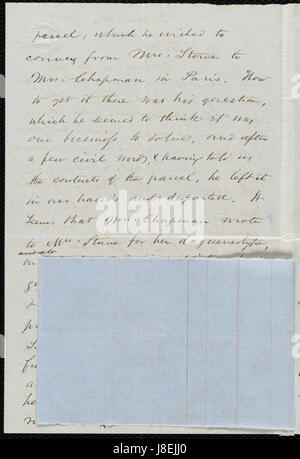 parcel, which he wished to
convey from Mrs. Stowe to
Mrs. Chapman in Paris. How
to get it there was his question,
which he seemed to think it was
our business to solve, and after
a few civil words, (having told us
the contents of the parcel, he left it
in our hands and departed. It
seems that Mrs. Chapman wrote
to Mrs. Stowe for her daguerreotype,
alamy
Image ID: J8EJJ0
www.alamy.com